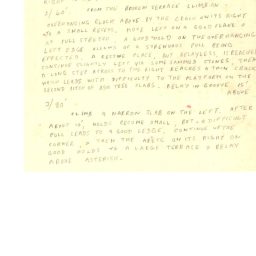 RIGHT
2/60' FROM THE BROKEN TERRACE CLIMB AN
OVERHANGING CRACK ABOVE BY THE CRACK ON ITS RIGHT
TO A SMALL RECESS, MOVE LEFT ON A GOOD FLAKE
AT FULL STRETCH. A GOOD HOLD ON THE OVERHANGING
LEFT EDGE ALLOWS OF A STRENUOUS PULL BEING
EFFECTED, A RESTING PLACE, BUT BELAYLESS, IS REACHED
CONTINUE SLIGHTLY LEFT VIA SOME JAMMED STONES, THEN
A LONG STEP ACROSS TO THE RIGHT REACHES A THIN CRACK
WHICH LEADS WITH DIFFICULTY TO THE PLATFORM ON THE
SECOND PITCH OF SLABS. BELAY IN GROOVE 15'
ABOVE
3/80' CLIMB A NARROW SLAB ON THE LEFT. AFTER
ABOUT 10', HOLDS BECOME SMALL, BUT A DIFFICULT
PULL LEADS TO A GOOD LEDGE. CONTINUE UP THE
CORNER, THEN THE ARETE ON ITS RIGHT ON
GOOD HOLDS TO A LARGE TERRACE & BELAY
ABOVE ASTERISK.